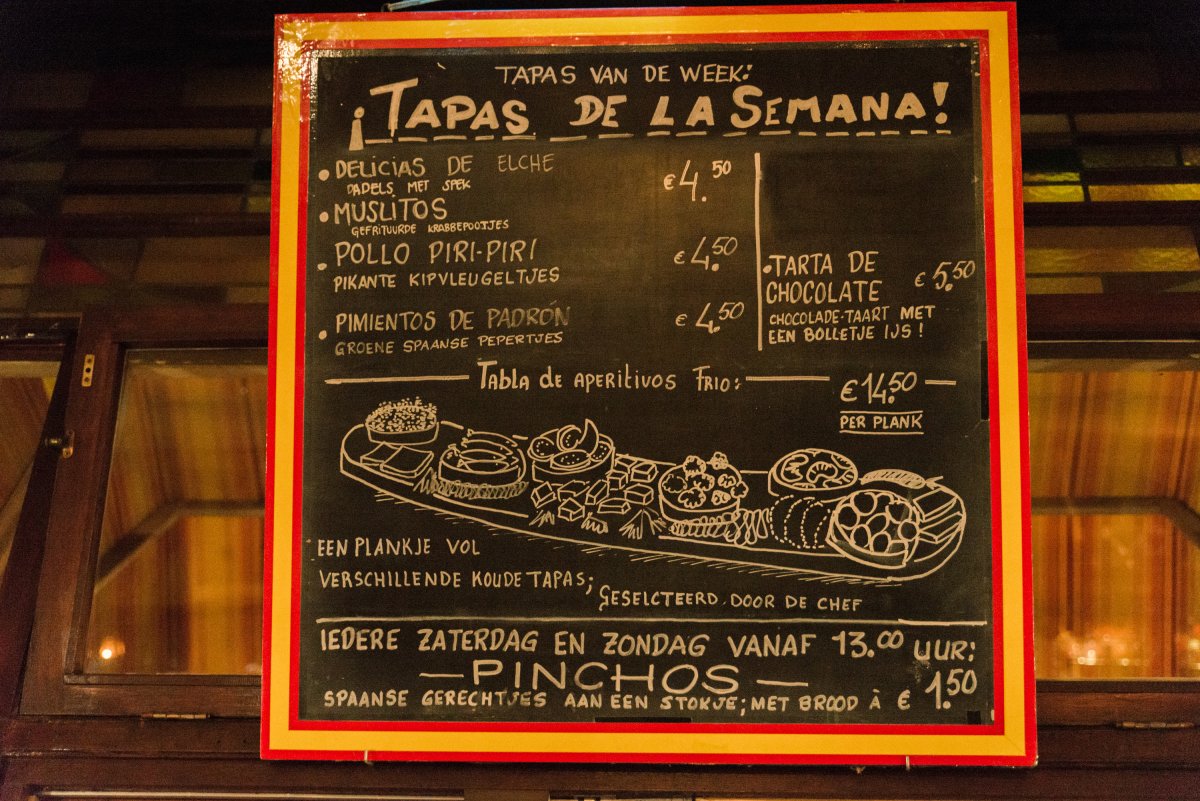 TAPAS VAN DE WEEK:
¡TAPAS DE LA SEMANA!
• DELICIAS DE ELCHE €4.50
DADELS MET SPEK
• MUSLITOS
GEFRITUURDE KRABBEPOOTJES
• POLLO PIRI-PIRI €4.50
PIKANTE KIPVLEUGELTJES
• PIMIENTOS DE PADRÓN €4.50
GROENE SPAANSE PEPERTJES
• TARTA DE
CHOCOLATE €5.50
CHOCOLADE-TAART MET
EEN BOLLETJE IJS!
Tabla de aperitivos Frio: €14.50
PER PLANK
EEN PLANKJE VOL
VERSCHILLENDE KOUDE TAPAS;
GESELCTEERD DOOR DE CHEF
IEDERE ZATERDAG EN ZONDAG VANAF 13.00 UUR:
— PINCHOS —
SPAANSE GERECHTJES AAN EEN STOKJE; MET BROOD À € 1.50